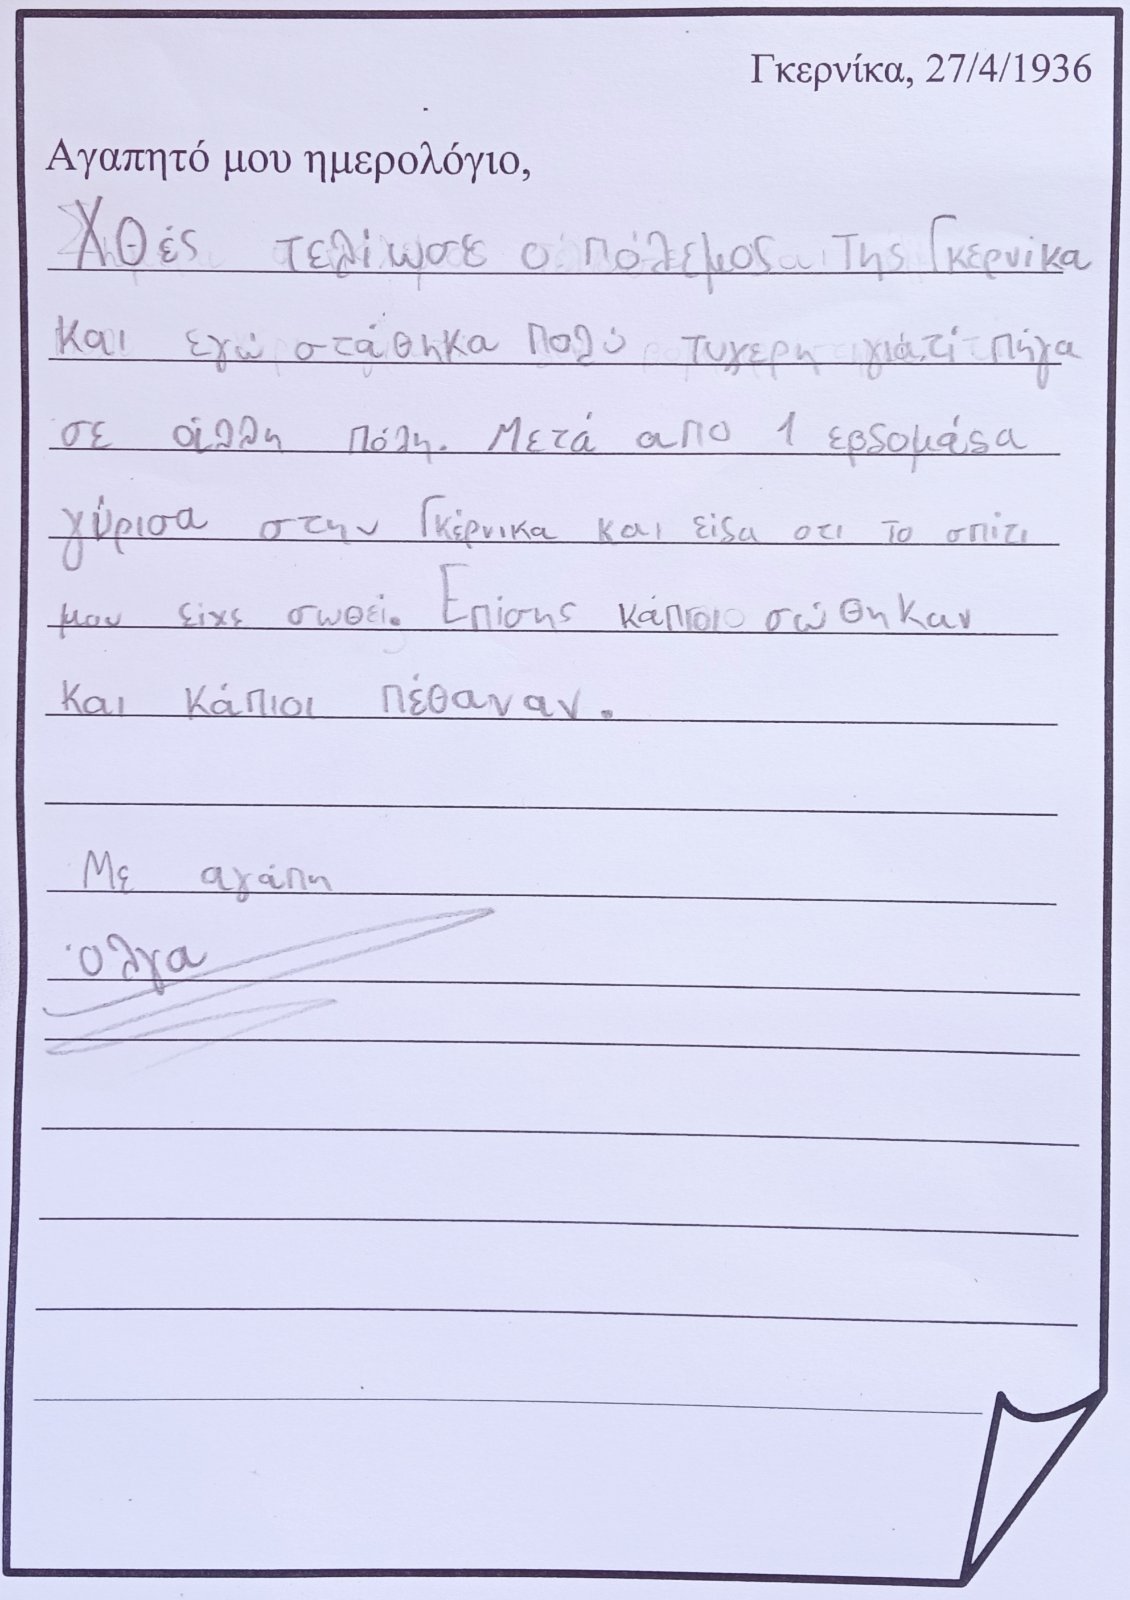 Γκερνίκα, 27/4/1936
Αγαπητό μου ημερολόγιο,
Χθές τελίωσε ο πόλεμος της Γκερνίκα
και εγώ στάθηκα πολύ τυχερη γιατί πήγα
σε άλλη πόλη. Μετά απο 1 ερδομάδα
γύρισα στην Γκέρνικα και είδα οτι το σπίτι
μου είχε σωθεί. Επίσης κάποιο σώθηκαν
και κάπιοι πέθαναν.
Με αγάπη
Όλγα